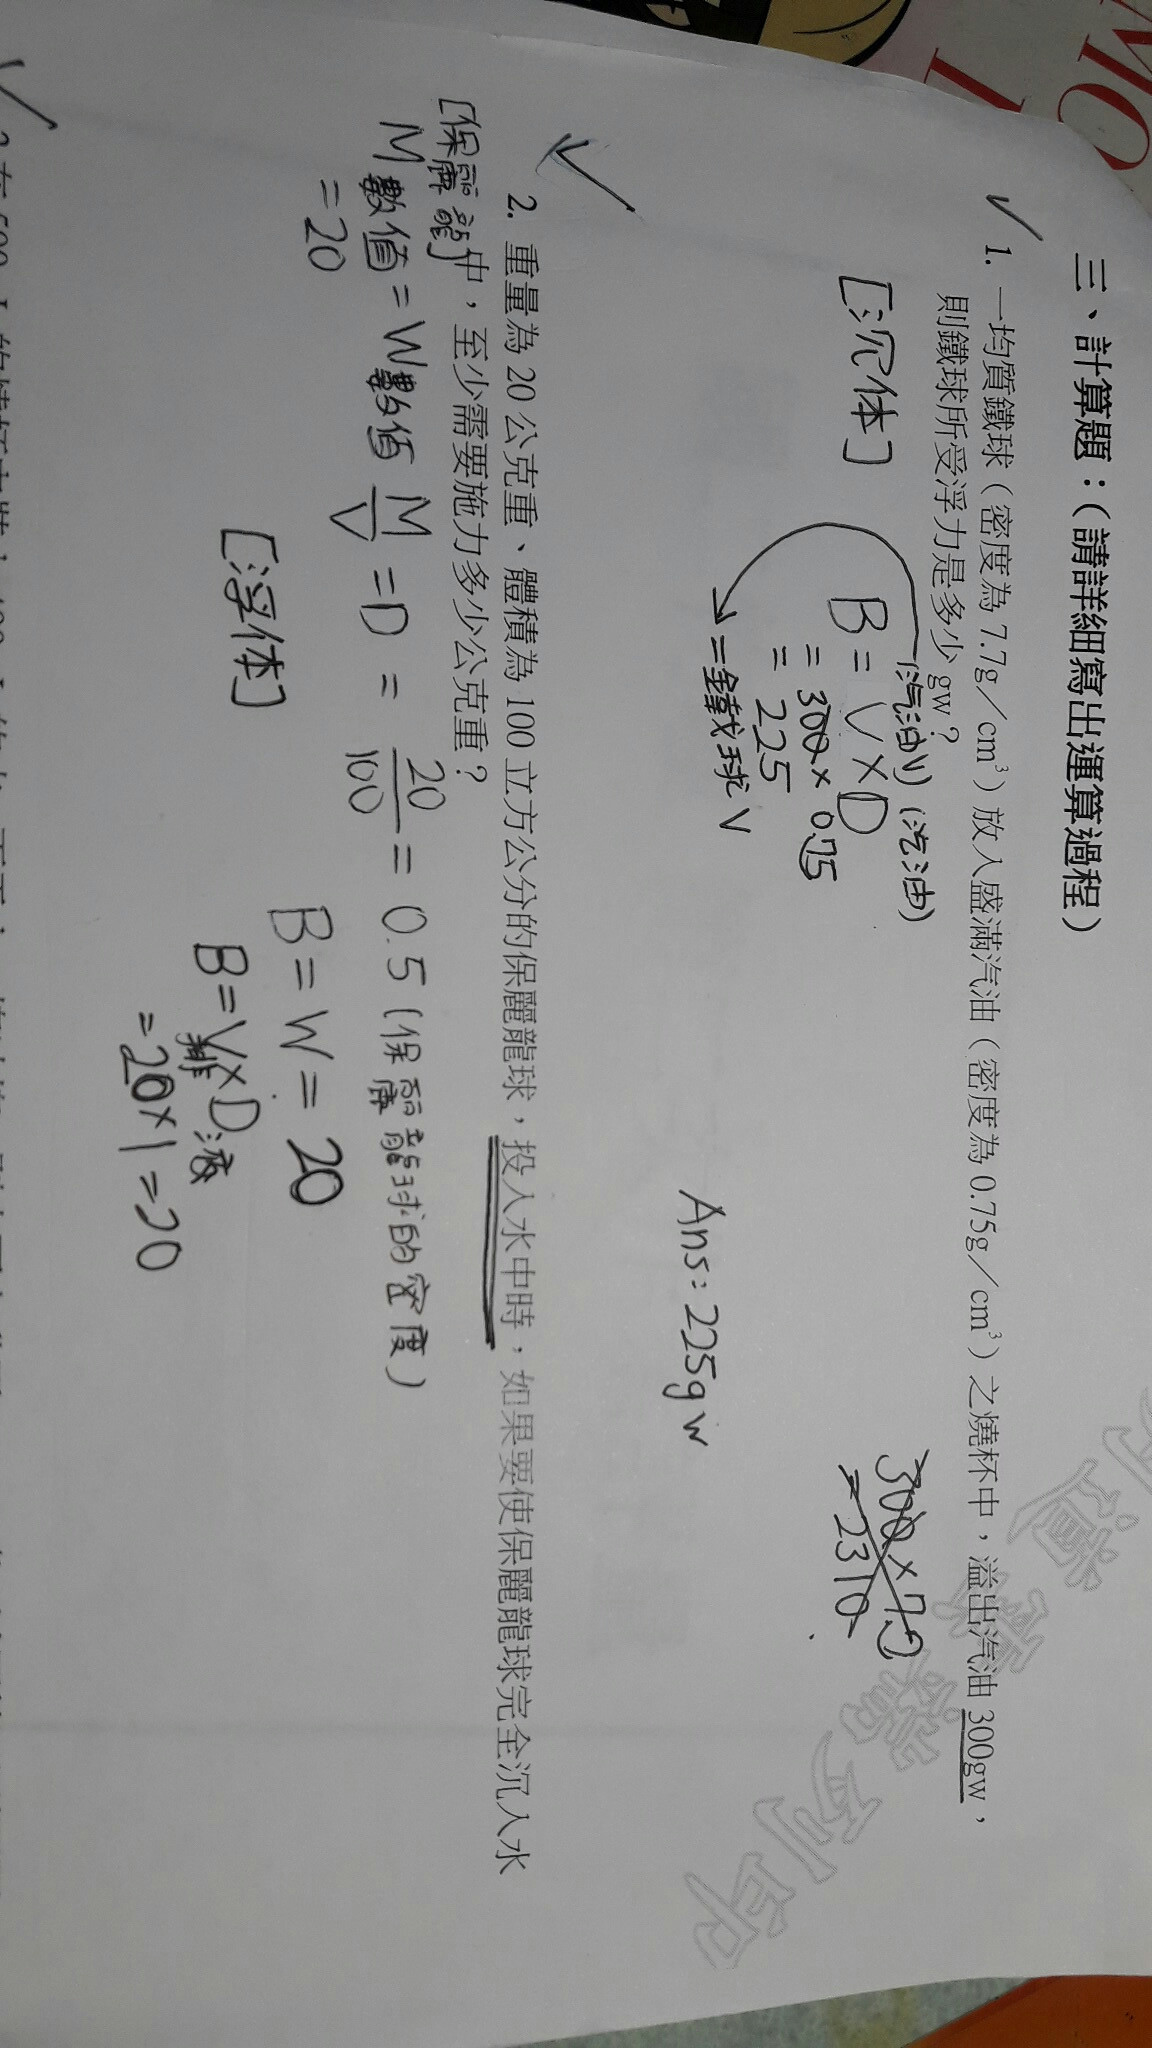 三、計算題：（請詳細寫出運算過程）
1. 一均質鐵球（密度為 7.7g／cm³）放入盛滿汽油（密度為 0.75g／cm³）之燒杯中，溢出汽油 300gw，
則鐵球所受浮力是多少 gw？
[沉体]
(汽油V) (汽油)
B = V × D
= 300 × 0.75
= 225
= 鐵球 V
300 × 7.7
= 2310
Ans: 225gw
2. 重量為 20 公克重、體積為 100 立方公分的保麗龍球，投入水中時，如果要使保麗龍球完全沉入水
中，至少需要施力多少公克重？
[保麗龍]
M數值 = W數值
= 20
M/V = D = 20/100 = 0.5 (保麗龍球的密度)
[浮体]
B = W = 20
B = V排 × D液
= 20 × 1 = 20